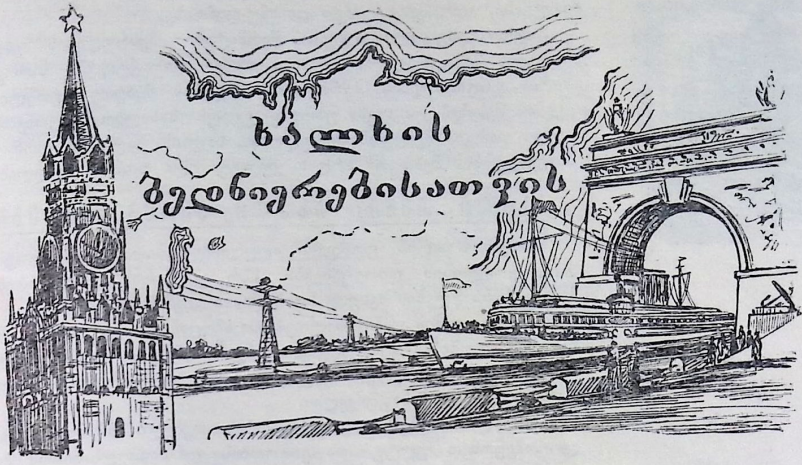 ხალხის
ბედნიერებისათვის